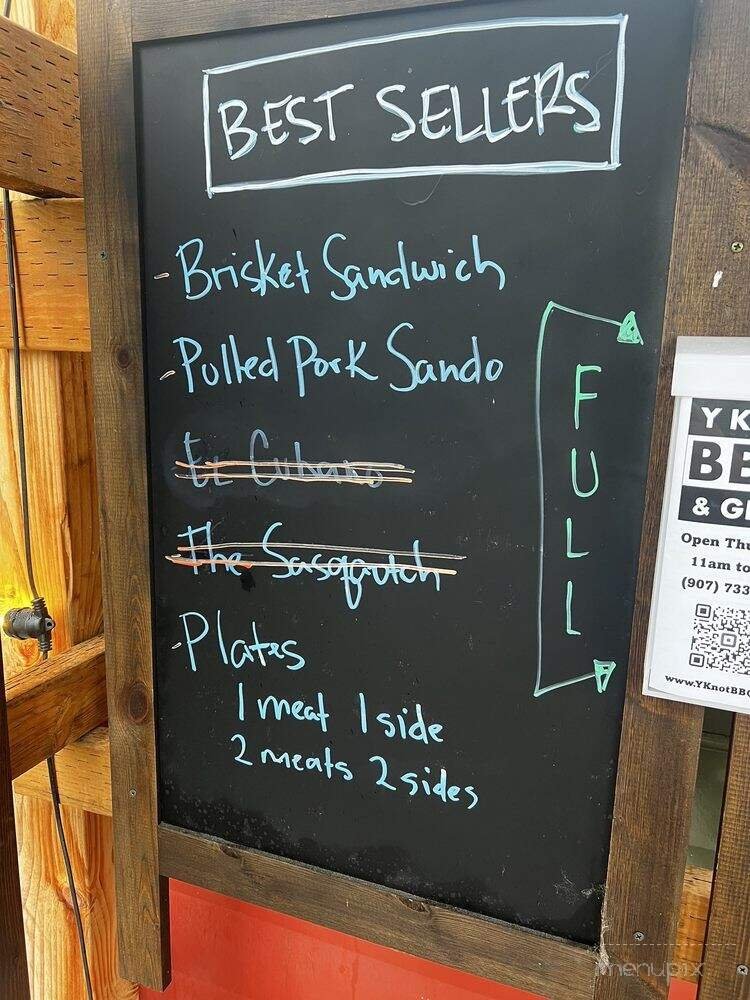 BEST SELLERS
- Brisket Sandwich
- Pulled Pork Sando
El Cubano
The Sasquatch
- Plates
1 meat 1 side
2 meats 2 sides
FULL
Y K
BB
& G
Open Thu
11am to
(907) 733
www.YKnotBB
menupix